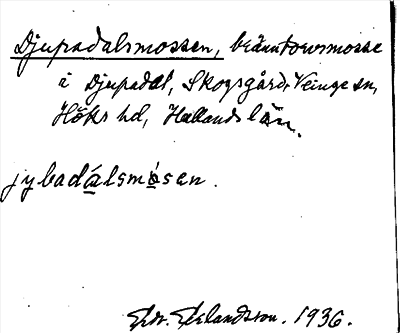 Djupadalsmossen, bränntorvsmosse
i Djupadal, Skogsgård, Veinge sn,
Höks hd, Hallands län.
jybadálsmósan.
Erlandsson. 1936.